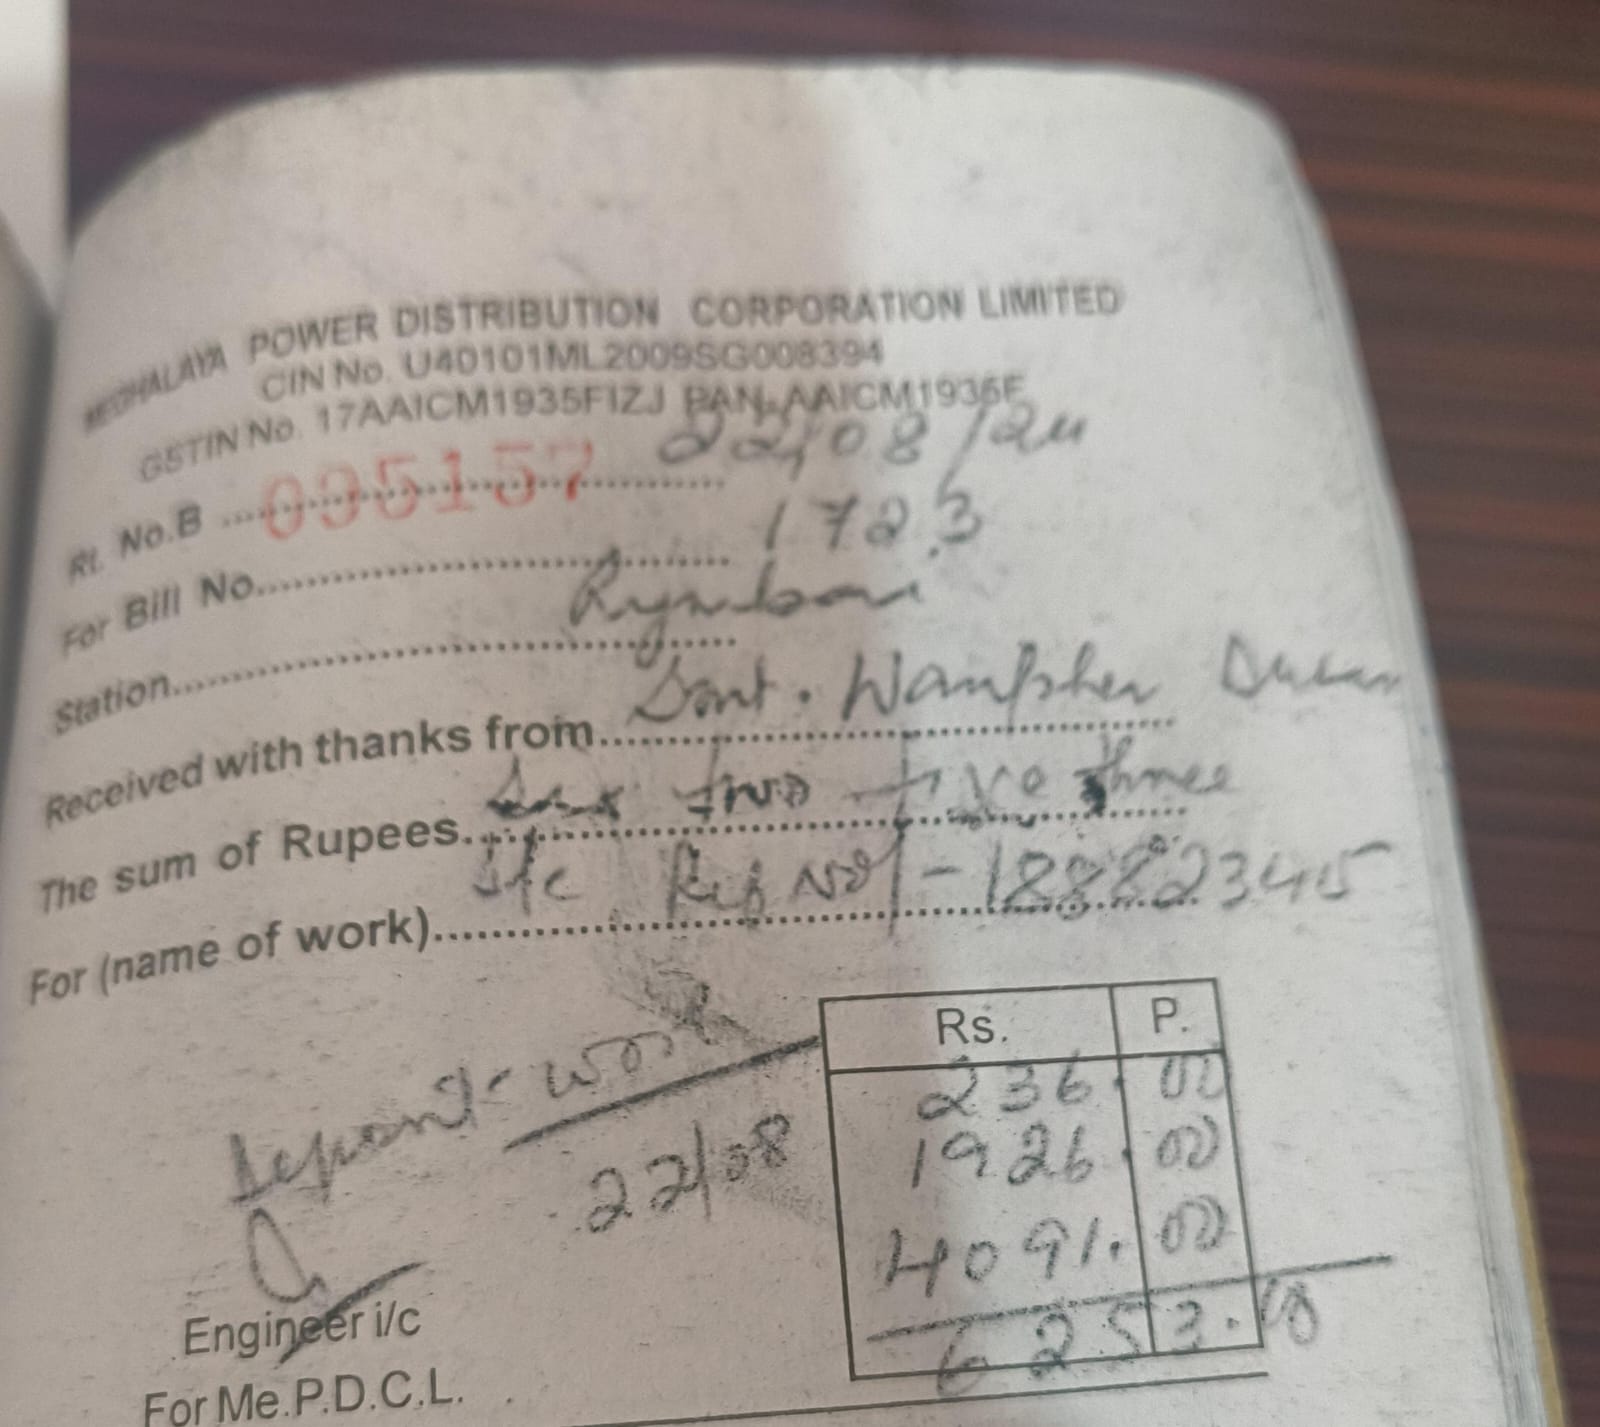 MEGHALAYA POWER DISTRIBUTION CORPORATION LIMITED
CIN No. U40101ML2009SG008394
GSTIN No. 17AAICM1935FIZJ PAN-AAICM1935F
Rt. No.B 095157 22/08/24
For Bill No. 1723
Station Rymbai
Received with thanks from Smt. Wanpher
The sum of Rupees Six two five three
For (name of work) S/C Ref No - 188882345
Rs. P.
236.00
1926.00
4091.00
6253.00
Deposit work
22/08
Engineer i/c
For Me.P.D.C.L.